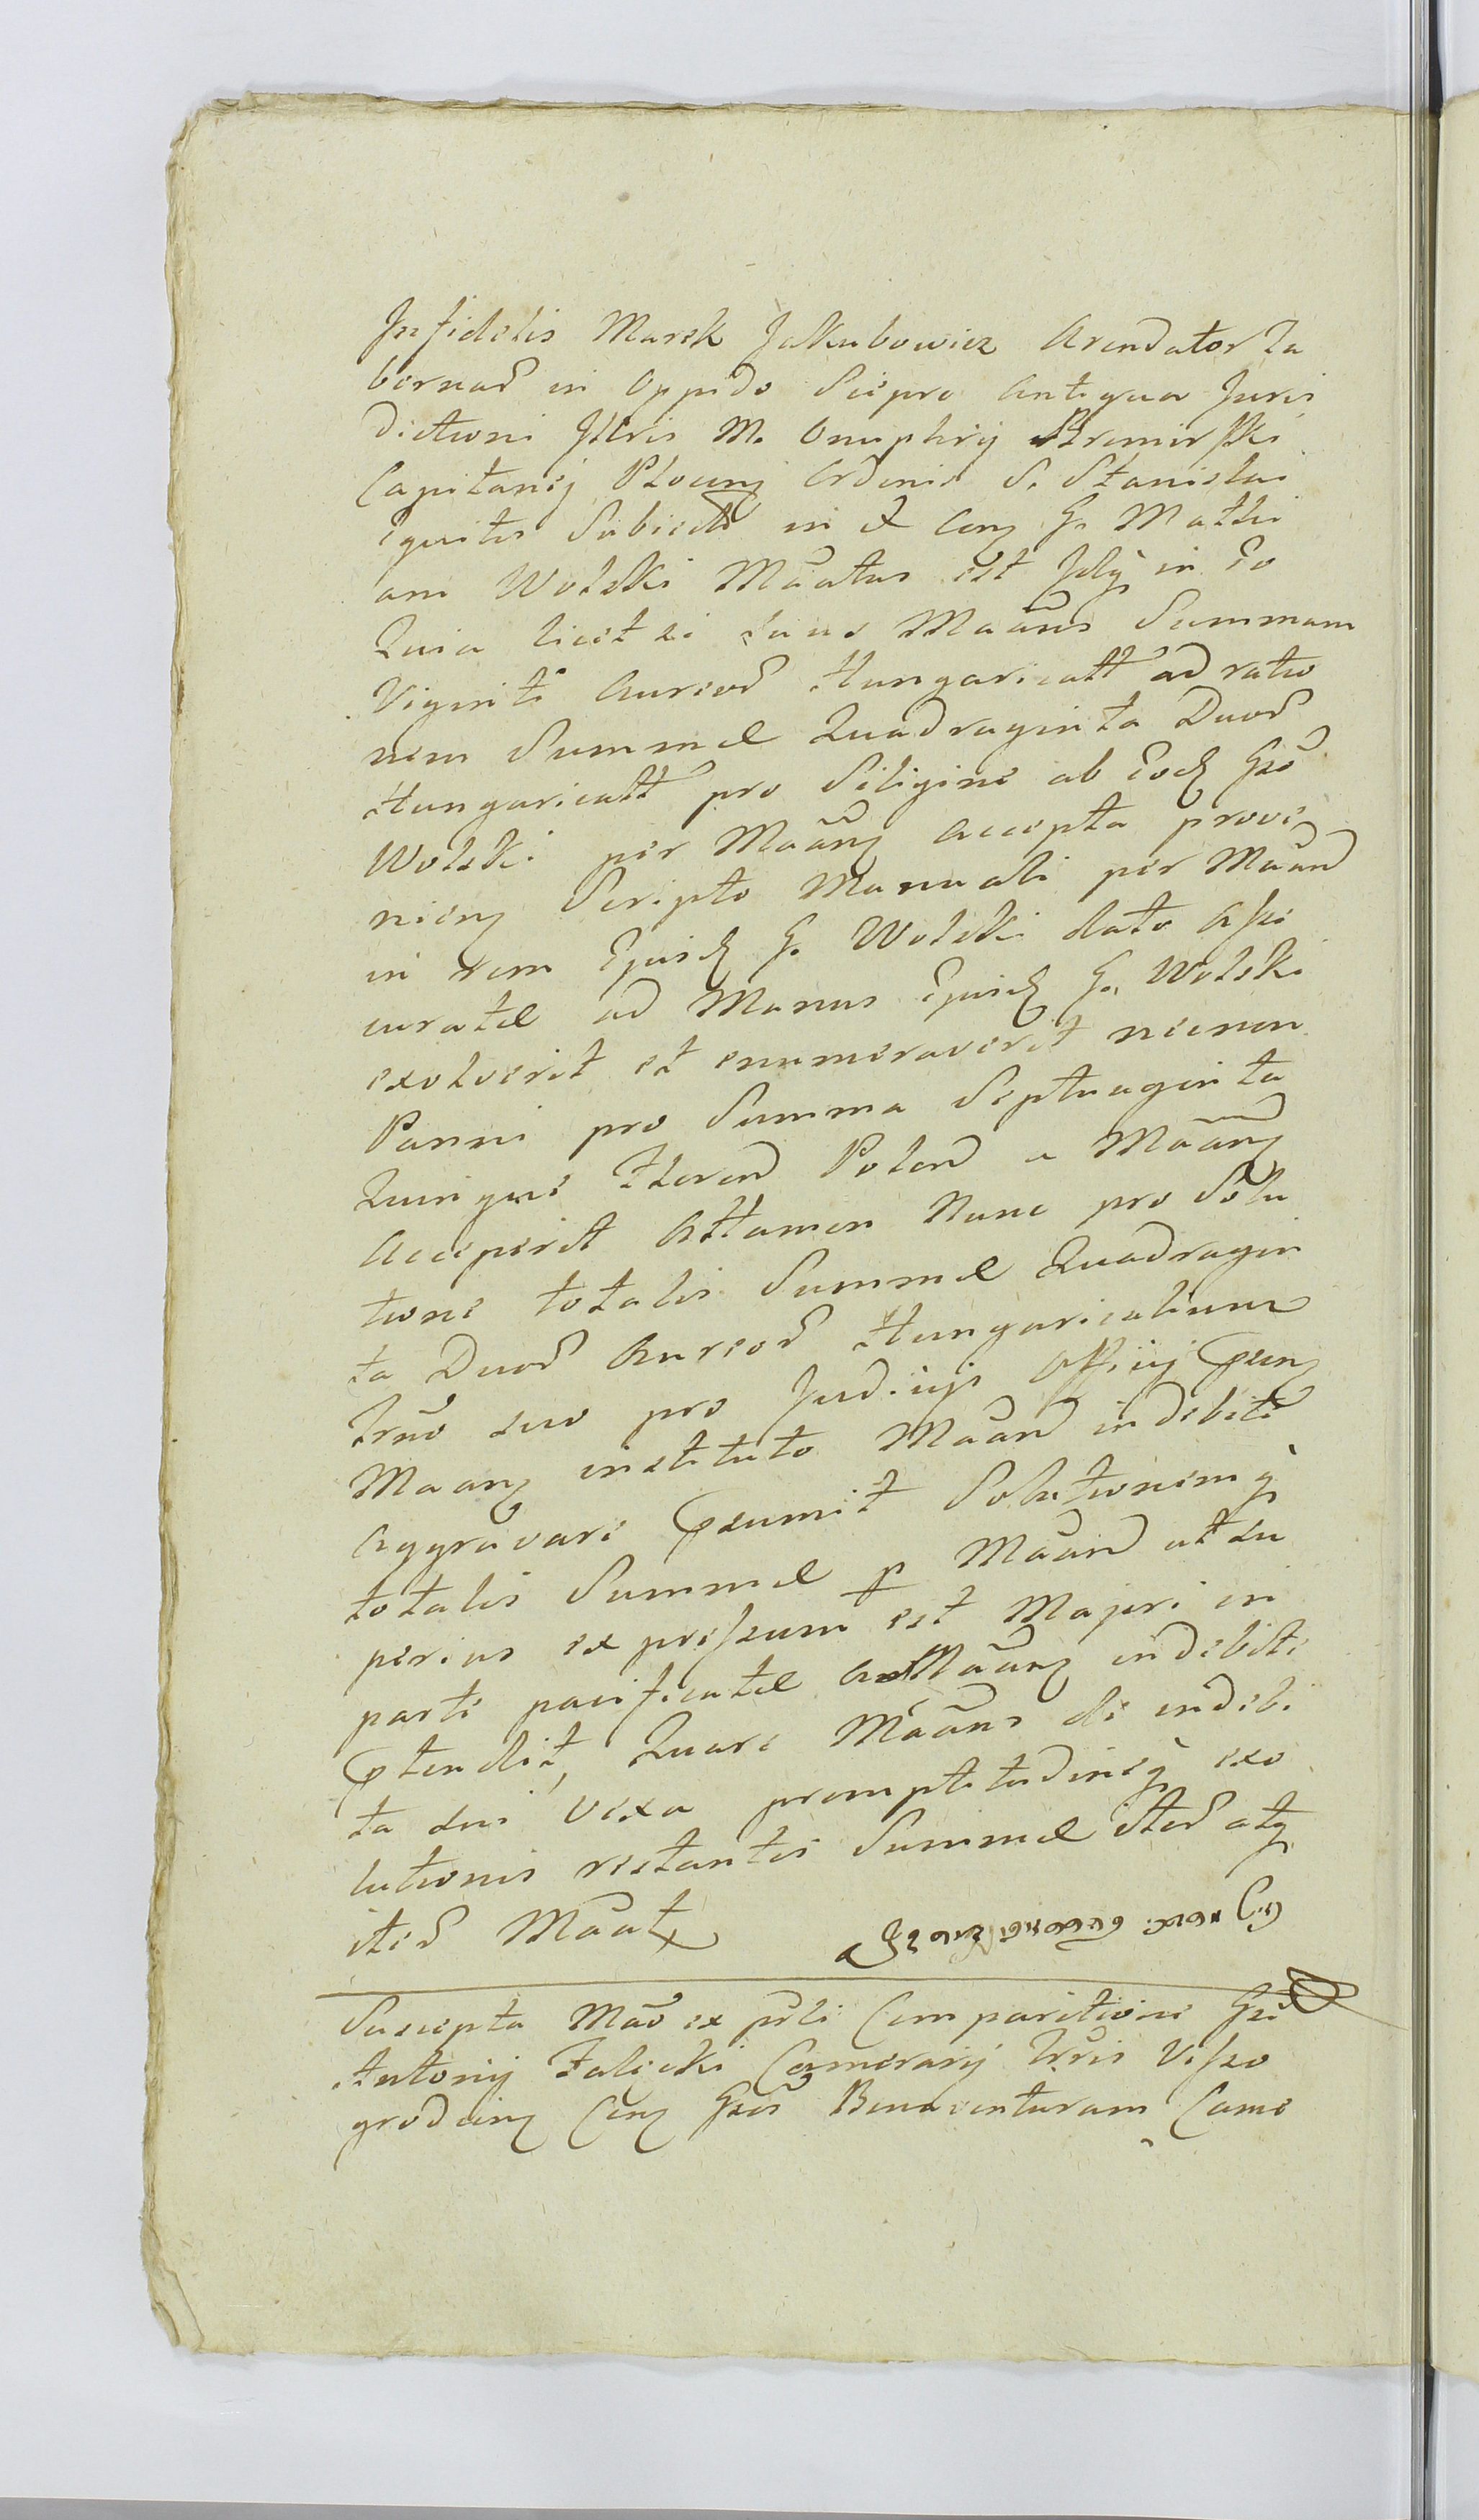 Infidelis Marek Jakubowicz Arendator Ta
bernar in Oppido Sierpro Antiqua Juris
dictioni Illris M. Onuphrij Bromirski
Capitanej Plocen Ordinis S. Stanislai
Equitis Subiecto in et Con G. Mathi
am Wolski Maatus est Idq in Eo
Quia licet ei suus Maans Summam
Viginti Aureor Hungaricall ad ratio
nem Summae Quadraginta Duor
Hungaricall pro Siligine ab Eod Gso
Wolski per Maan accepta prove
nien Scripto Manuali per Maan
in rem Ejusd G. Wolski dato Asse
curatae ad Manus Ejusd G. Wolski
exolverit et enumeraverit necnon
Panni pro Summa Septuaginta
Quinque Floren Polon a Maan
Acceperit Attamen Nunc pro Solu
tione totalis Summae Quadragin
ta Duor Aureor Hungaricalium
Trno suo pro Judicijs Officij psen
Maan instituto Maan indebite
Aggravare psumit Solutionemq
totalis Summae p Maan ut su
perius expressum est Majori in
parte pacificatae a Maan indebite
ptendit, Quare Maans de indebi
ta sui vexa promptitudineq exo
lutionis restantis Summae iter atq
iter Maat
Suscepta Mao ex psli Comparitione Gsi
Antonij Zalęski Camerarij Trris Visso
groden Con Gsos Bonaventuram Came